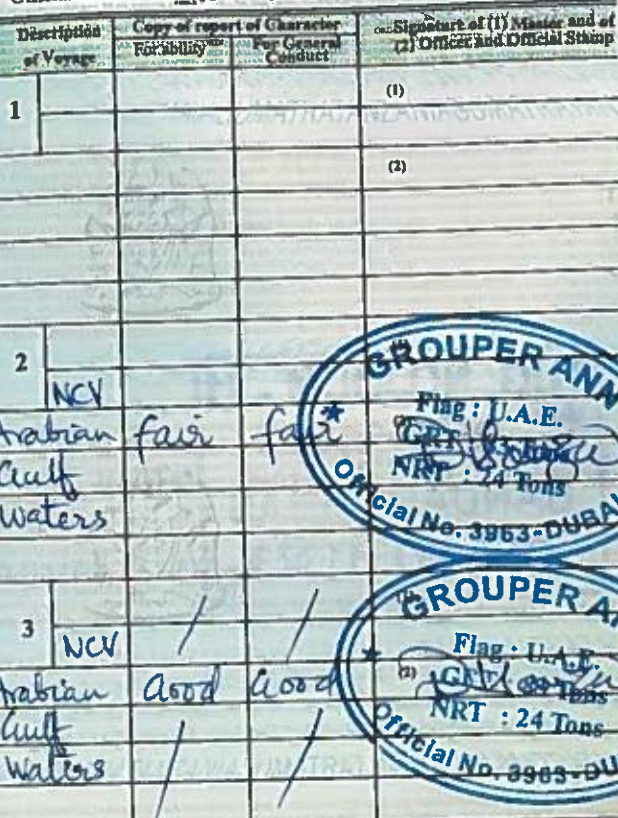 Description
of Voyage
Copy of report of Character
For ability
For General
Conduct
Signature of (1) Master and of
(2) Officer and Official Stamp
1
(1)
(2)
2
NCV
Arabian fair fair
Gulf
Waters
GROUPER ANN
Flag : U.A.E.
GRT
NRT : 24 Tons
Official No. 3963-DUBA
3
NCV / /
Arabian Good Good
Gulf / /
Waters
GROUPER A
Flag : U.A.E.
(2)
GRT Tons
NRT : 24 Tons
Official No. 3963-DU